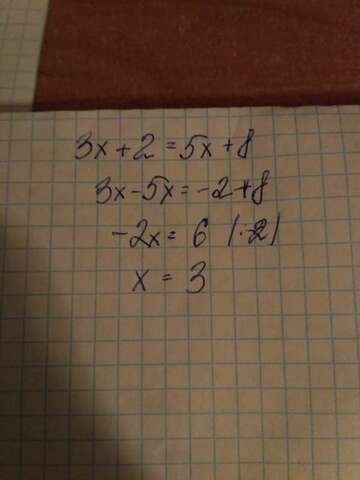 3x+2=5x+8
3x-5x=-2+8
-2x= 6 |:-2|
x = 3